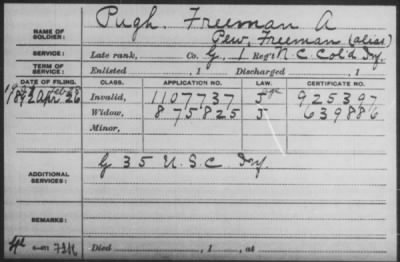 NAME OF SOLDIER: Pugh. Freeman A
Pew, Freeman (alias)
SERVICE: Late rank, Co. G, 1 Reg't N. C. Col'd Inf.
TERM OF SERVICE: Enlisted , 1 Discharged , 1
DATE OF FILING. CLASS. APPLICATION NO. LAW. CERTIFICATE NO.
Invalid, 1107737 925397
1892 Apr. 26 Widow, 875825 639886
Minor,
ADDITIONAL SERVICES: G 35 U.S.C Inf.
REMARKS:
Died , 1 , at